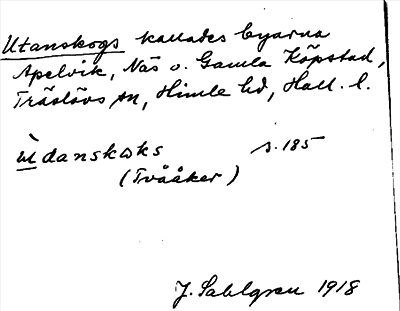 Utanskogs kallades byarna
Apelvik, Näs o. Gamla Köpstad,
Träslövs sn, Himle hd, Hall. l.
danskoks s. 185
(Tvååker)
J. Sahlgren 1918